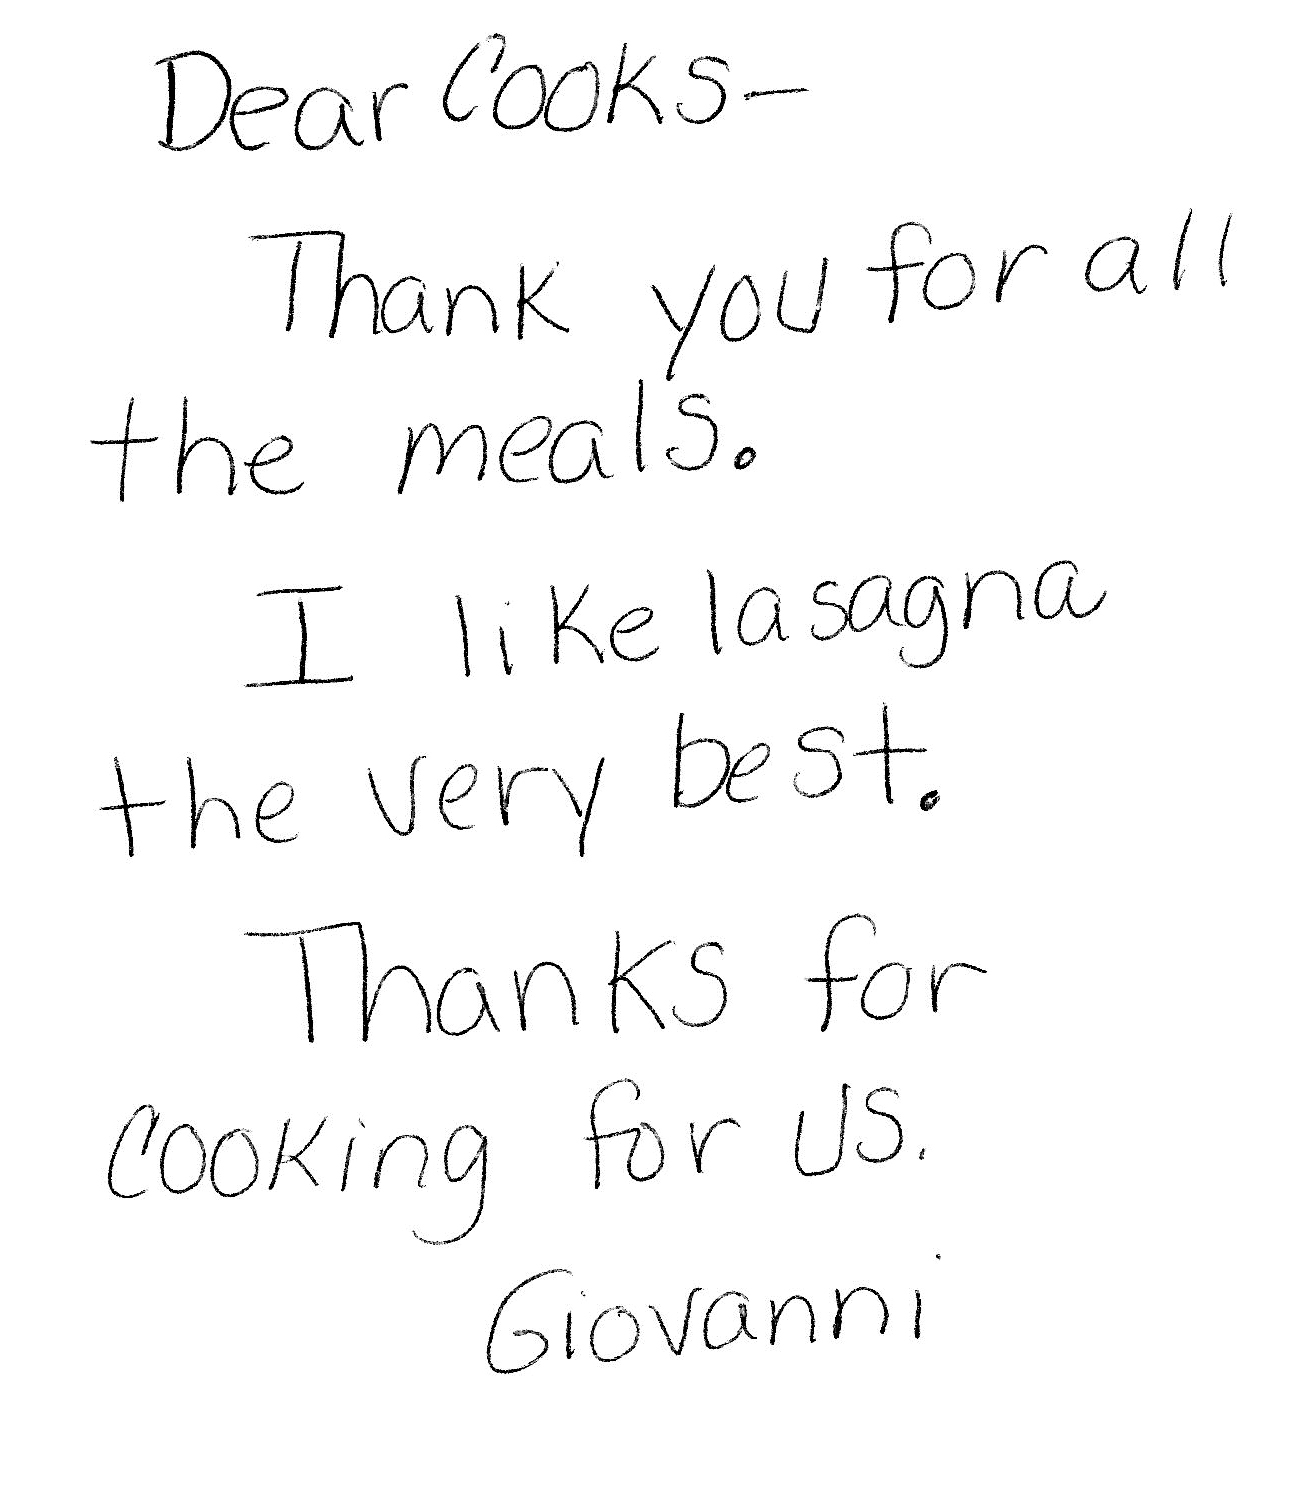 Dear Cooks-
Thank you for all
the meals.
I like lasagna
the very best.
Thanks for
cooking for us.
Giovanni